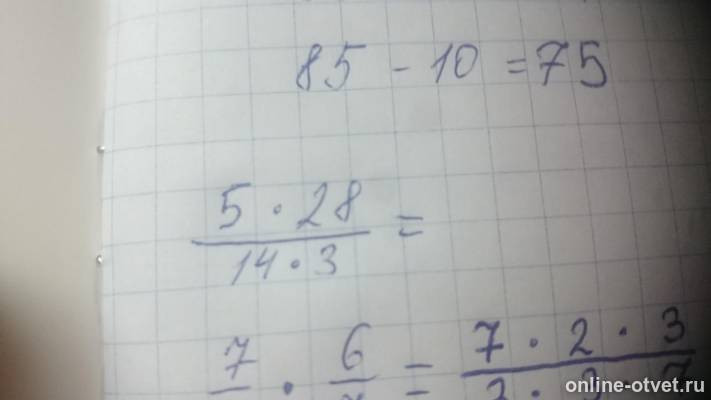 85 - 10 = 75
5 · 28
14 · 3 =
7 · 6 = 7 · 2 · 3
online-otvet.ru